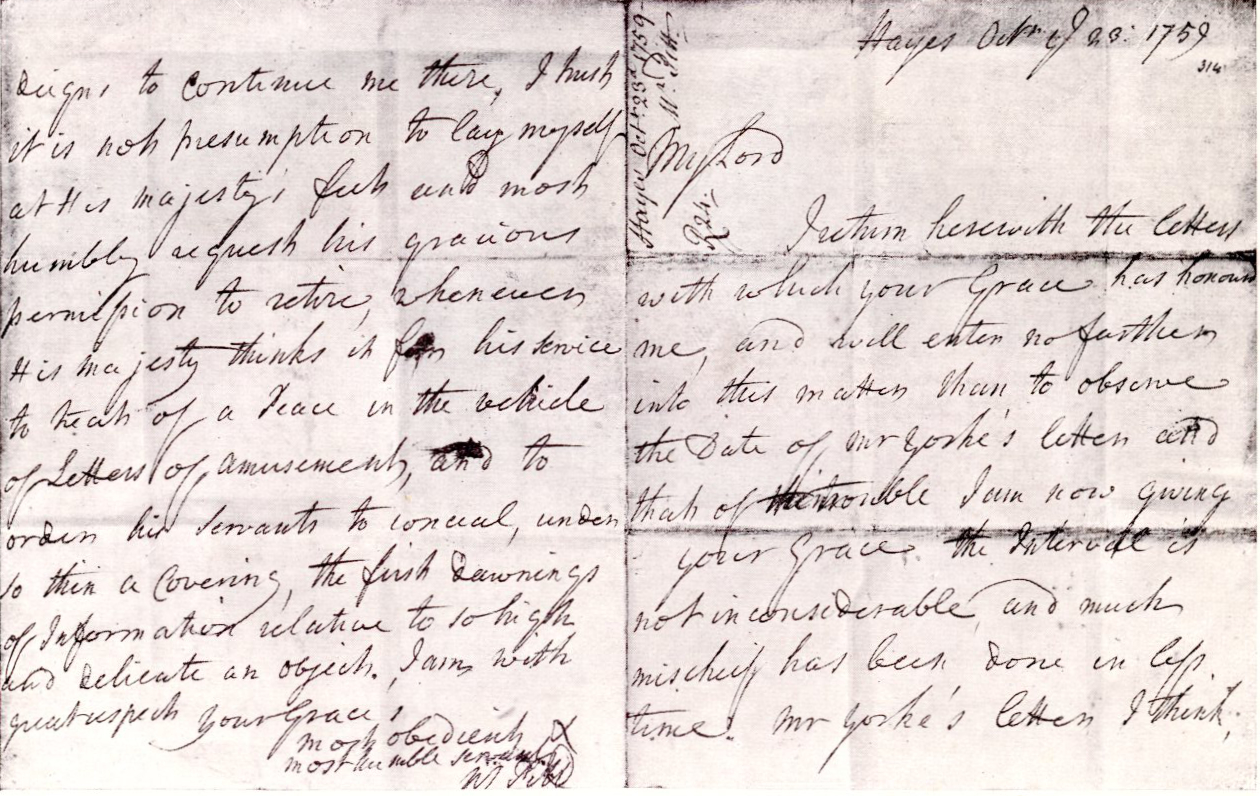 Hayes Octr ye 23: 1759
314
My Lord
I return herewith the letters
with which your Grace has honour'd
me, and will enter no farther
into this matter than to observe
the Date of Mr Yorke's letter and
that of the trouble I am now giving
your Grace. the Interval is
not inconsiderable, and much
mischief has been done in less
time. Mr Yorke's letter I think,
Hayes Octr 23d 1759
Mr Pitt.
R 24.
deigns to continue me there, I trust
it is not presumption to lay myself
at His majesty's feet and most
humbly request his gracious
permission to retire, whenever
His majesty thinks it for his service
to treat of a Peace in the vehicle
of Letters of amusement, and to
order his servants to conceal, under
so thin a Covering, the first Dawnings
of Information relative to so high
and delicate an object. I am with
great respect your Grace's
most obedient &
most humble servant
W Pitt